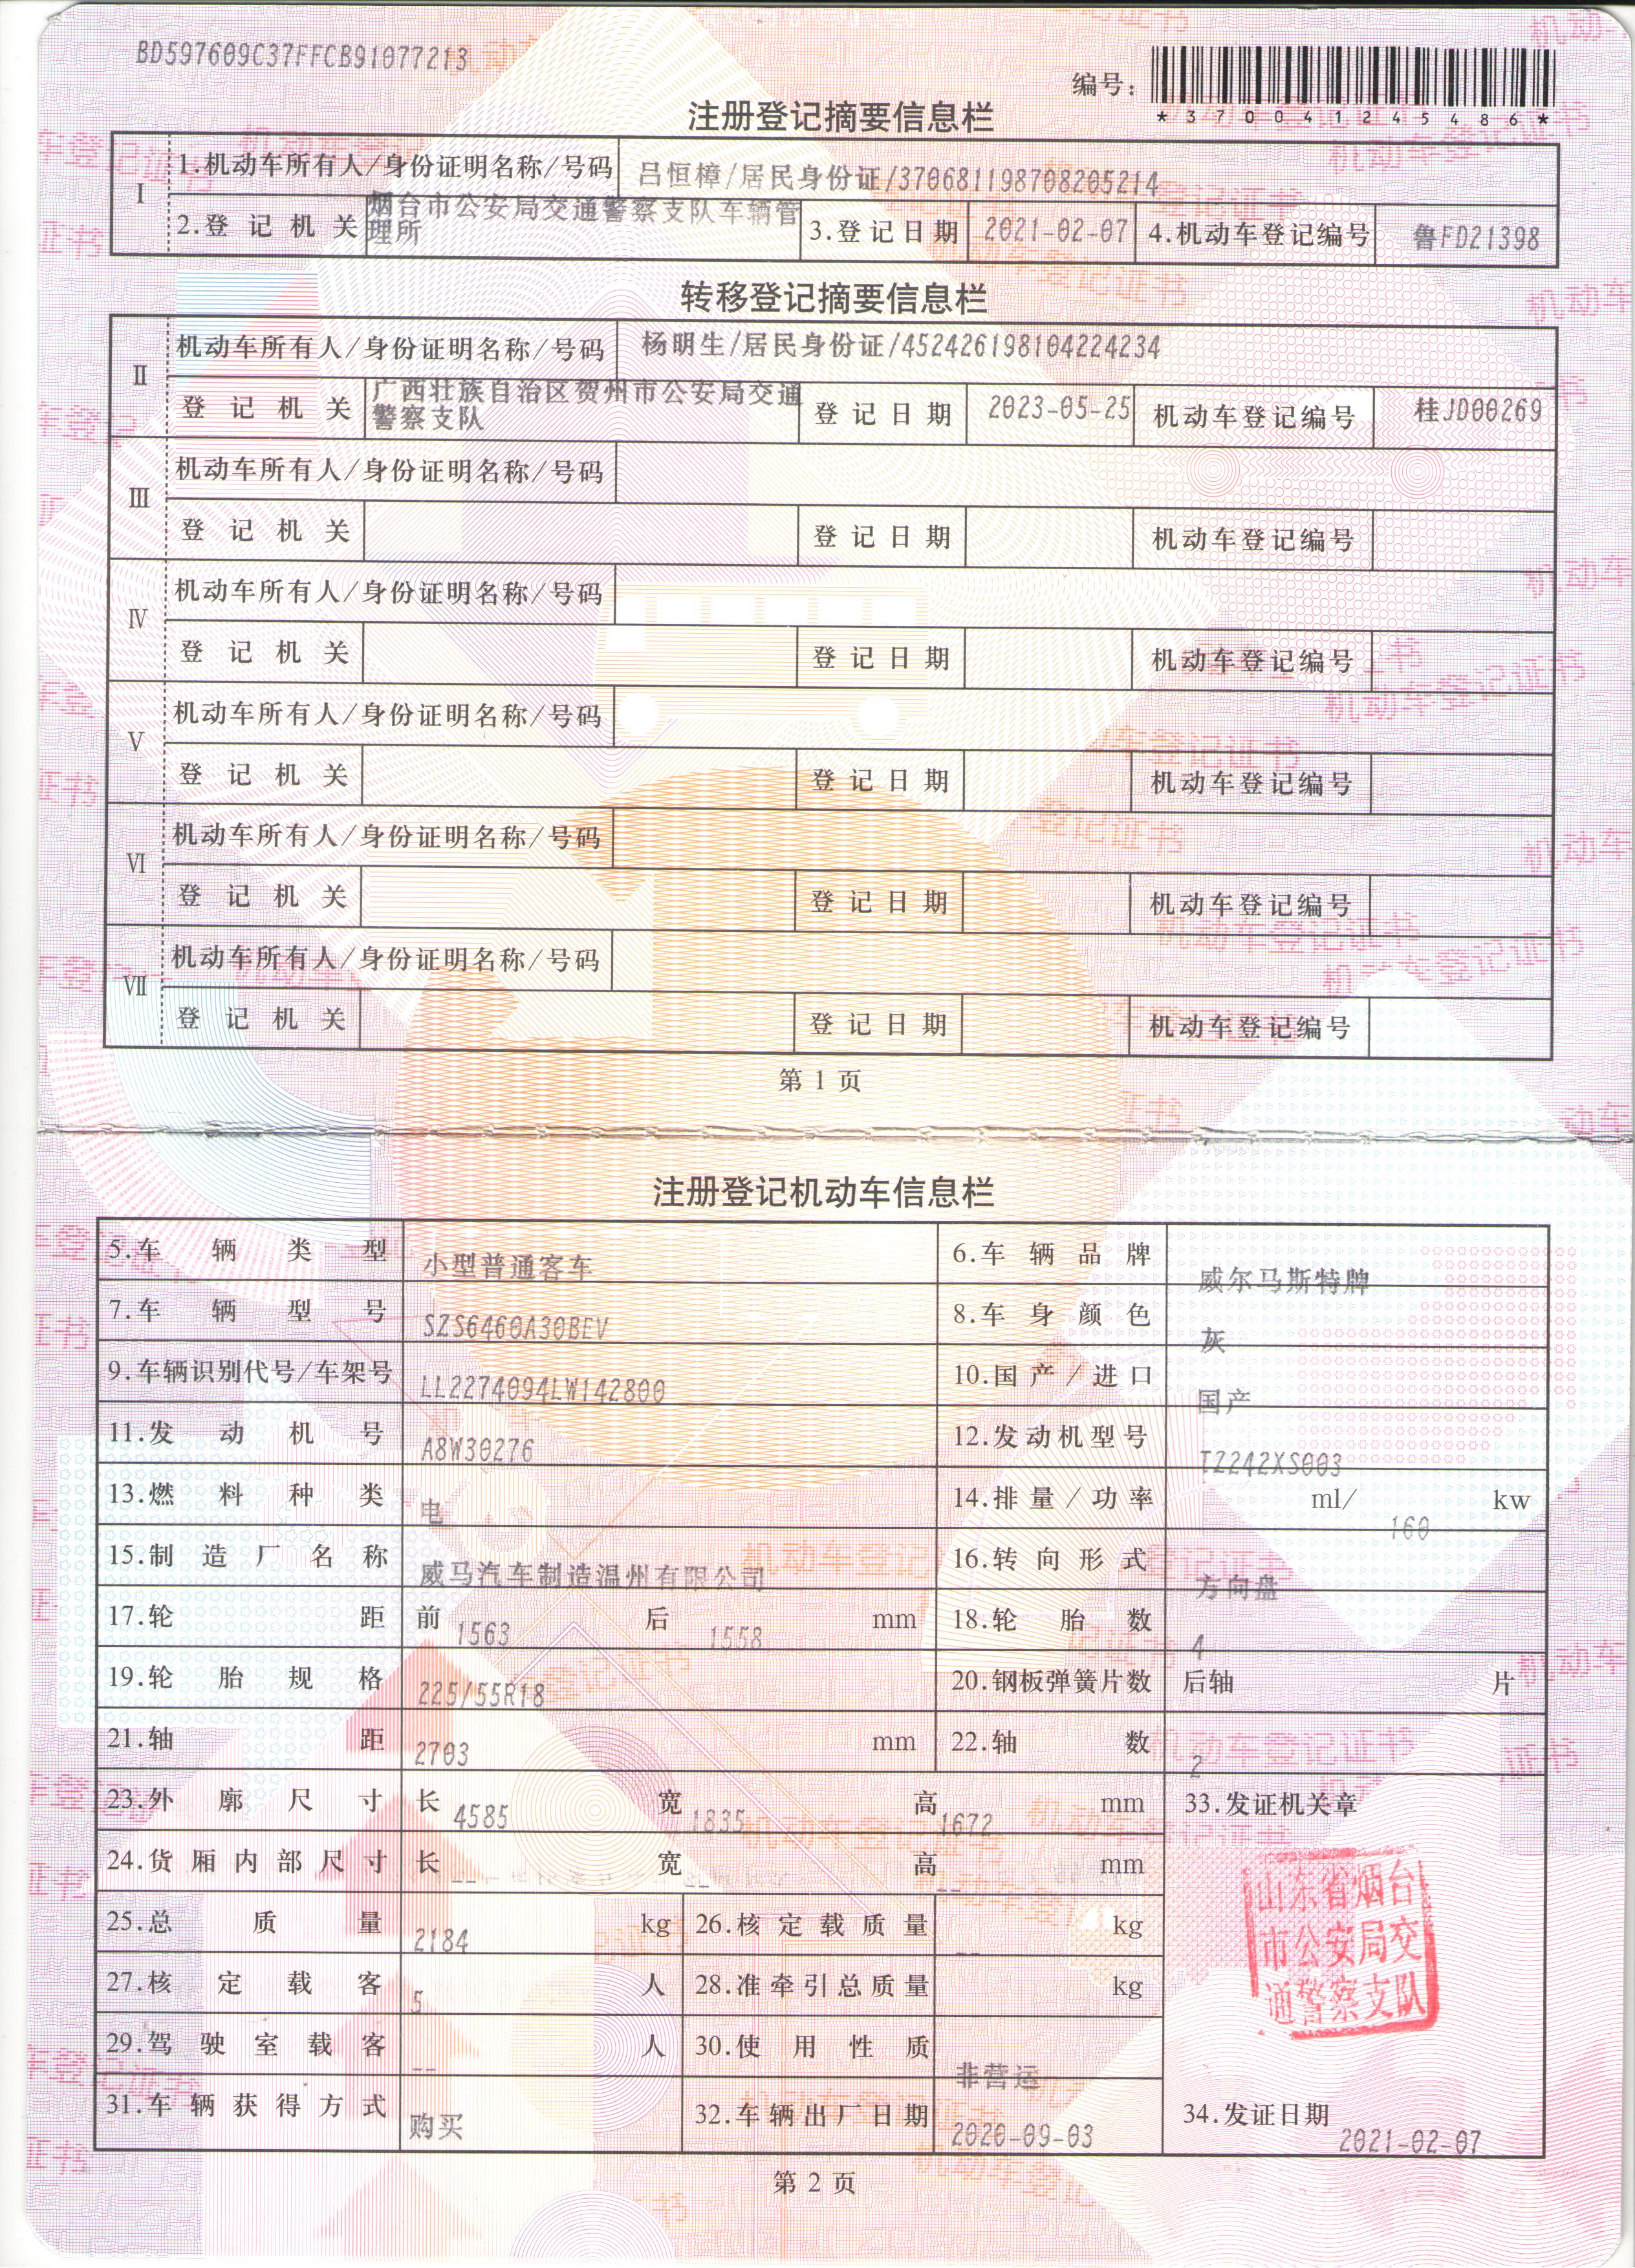 BD597609C37FFCB91077213
编号：
*370041245486*
注册登记摘要信息栏
Ⅰ
1.机动车所有人/身份证明名称/号码 吕恒樟/居民身份证/370681198708205214
2.登记机关 烟台市公安局交通警察支队车辆管理所 3.登记日期 2021-02-07 4.机动车登记编号 鲁FD21398
转移登记摘要信息栏
Ⅱ
机动车所有人/身份证明名称/号码 杨明生/居民身份证/452426198104224234
登记机关 广西壮族自治区贺州市公安局交通警察支队 登记日期 2023-05-25 机动车登记编号 桂JD00269
Ⅲ
机动车所有人/身份证明名称/号码
登记机关 登记日期 机动车登记编号
Ⅳ
机动车所有人/身份证明名称/号码
登记机关 登记日期 机动车登记编号
Ⅴ
机动车所有人/身份证明名称/号码
登记机关 登记日期 机动车登记编号
Ⅵ
机动车所有人/身份证明名称/号码
登记机关 登记日期 机动车登记编号
Ⅶ
机动车所有人/身份证明名称/号码
登记机关 登记日期 机动车登记编号
第 1 页
注册登记机动车信息栏
5.车辆类型 小型普通客车 6.车辆品牌 威尔马斯特牌
7.车辆型号 SZS6460A30BEV 8.车身颜色 灰
9.车辆识别代号/车架号 LL2274094LW142800 10.国产/进口 国产
11.发动机号 A8W30276 12.发动机型号 TZ242XS003
13.燃料种类 电 14.排量/功率 ml/ 160 kw
15.制造厂名称 威马汽车制造温州有限公司 16.转向形式 方向盘
17.轮距 前 1563 后 1558 mm 18.轮胎数 4
19.轮胎规格 225/55R18 20.钢板弹簧片数 后轴 片
21.轴距 2703 mm 22.轴数 2
23.外廓尺寸 长 4585 宽 1835 高 1672 mm 33.发证机关章
24.货厢内部尺寸 长 -- 宽 -- 高 -- mm
山东省烟台
市公安局交
通警察支队
25.总质量 2184 kg 26.核定载质量 -- kg
27.核定载客 5 人 28.准牵引总质量 kg
29.驾驶室载客 -- 人 30.使用性质 非营运
31.车辆获得方式 购买 32.车辆出厂日期 2020-09-03 34.发证日期 2021-02-07
第 2 页